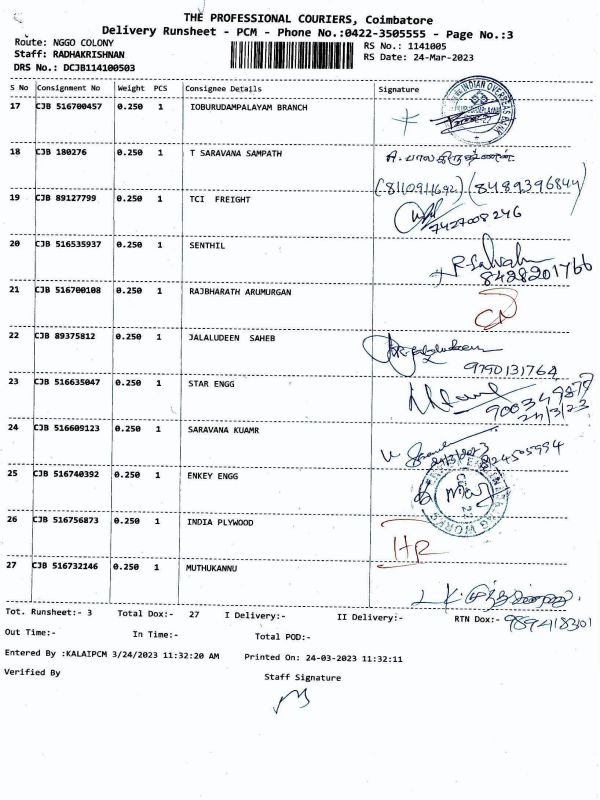 THE PROFESSIONAL COURIERS, Coimbatore
Delivery Runsheet - PCM - Phone No.:0422-3505555 - Page No.:3
Route: NGGO COLONY
Staff: RADHAKRISHNAN
DRS No.: DCJB114100503
RS No.: 1141005
RS Date: 24-Mar-2023
S No Consignment No Weight PCS Consignee Details Signature
17 CJB 516700457 0.250 1 IOBURUDAMPALAYAM BRANCH
INDIAN OVERSEAS BANK
18 CJB 180276 0.250 1 T SARAVANA SAMPATH
(8110911692) (8489396844)
19 CJB 89127799 0.250 1 TCI FREIGHT
7427008246
20 CJB 516535937 0.250 1 SENTHIL
8428201766
21 CJB 516700108 0.250 1 RAJBHARATH ARUMURGAN
22 CJB 89375812 0.250 1 JALALUDEEN SAHEB
Jalaludeen
9790131764
23 CJB 516635047 0.250 1 STAR ENGG
24/3/23
24 CJB 516609123 0.250 1 SARAVANA KUAMR
25 CJB 516740392 0.250 1 ENKEY ENGG
26 CJB 516756873 0.250 1 INDIA PLYWOOD
HR
27 CJB 516732146 0.250 1 MUTHUKANNU
Tot. Runsheet:- 3 Total Dox:- 27 I Delivery:- II Delivery:- RTN Dox:-
Out Time:- In Time:- Total POD:-
Entered By :KALAIPCM 3/24/2023 11:32:20 AM Printed On: 24-03-2023 11:32:11
Verified By Staff Signature